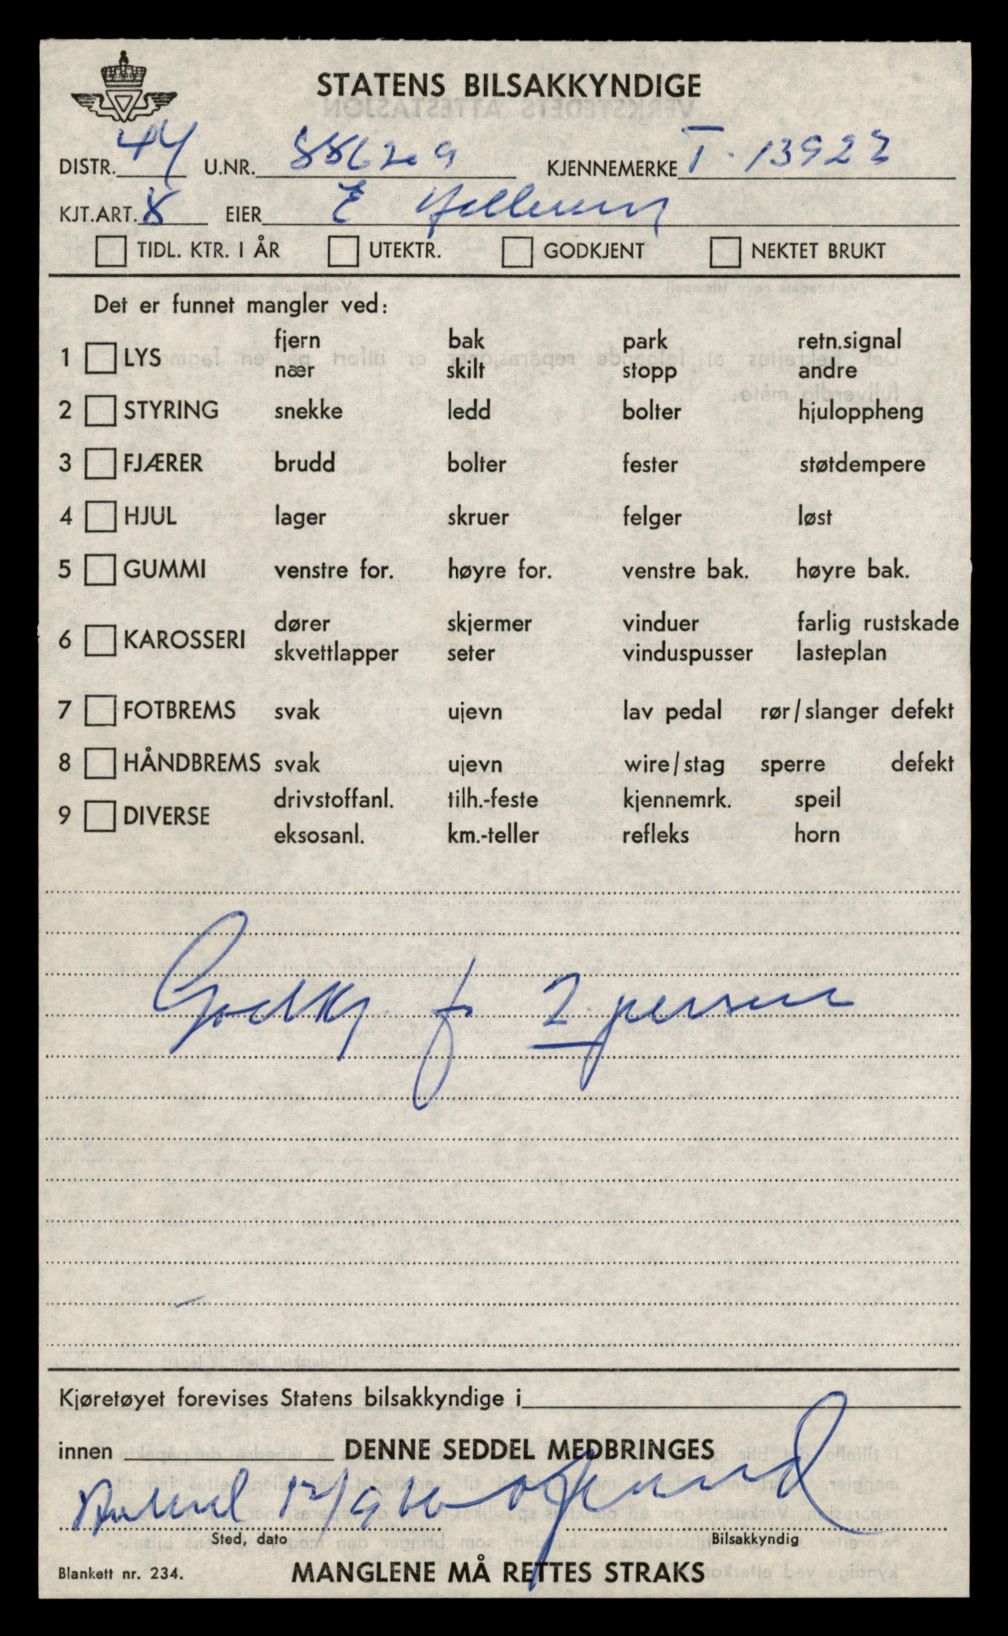 STATENS BILSAKKYNDIGE
DISTR. 44 U.NR. 886209 KJENNEMERKE T-13923
KJT.ART. 8 EIER E
TIDL. KTR. I ÅR UTEKTR. GODKJENT NEKTET BRUKT
Det er funnet mangler ved:
1 LYS fjern bak park retn.signal
nær skilt stopp andre
2 STYRING snekke ledd bolter hjuloppheng
3 FJÆRER brudd bolter fester støtdempere
4 HJUL lager skruer felger løst
5 GUMMI venstre for. høyre for. venstre bak. høyre bak.
6 KAROSSERI dører skjermer vinduer farlig rustskade
skvettlapper seter vinduspusser lasteplan
7 FOTBREMS svak ujevn lav pedal rør/slanger defekt
8 HÅNDBREMS svak ujevn wire/stag sperre defekt
9 DIVERSE drivstoffanl. tilh.-feste kjennemrk. speil
eksosanl. km.-teller refleks horn
Godkj. f 2 person
Kjøretøyet forevises Statens bilsakkyndige i
innen DENNE SEDDEL MEDBRINGES
12/9 66
Sted, dato Bilsakkyndig
Blankett nr. 234. MANGLENE MÅ RETTES STRAKS